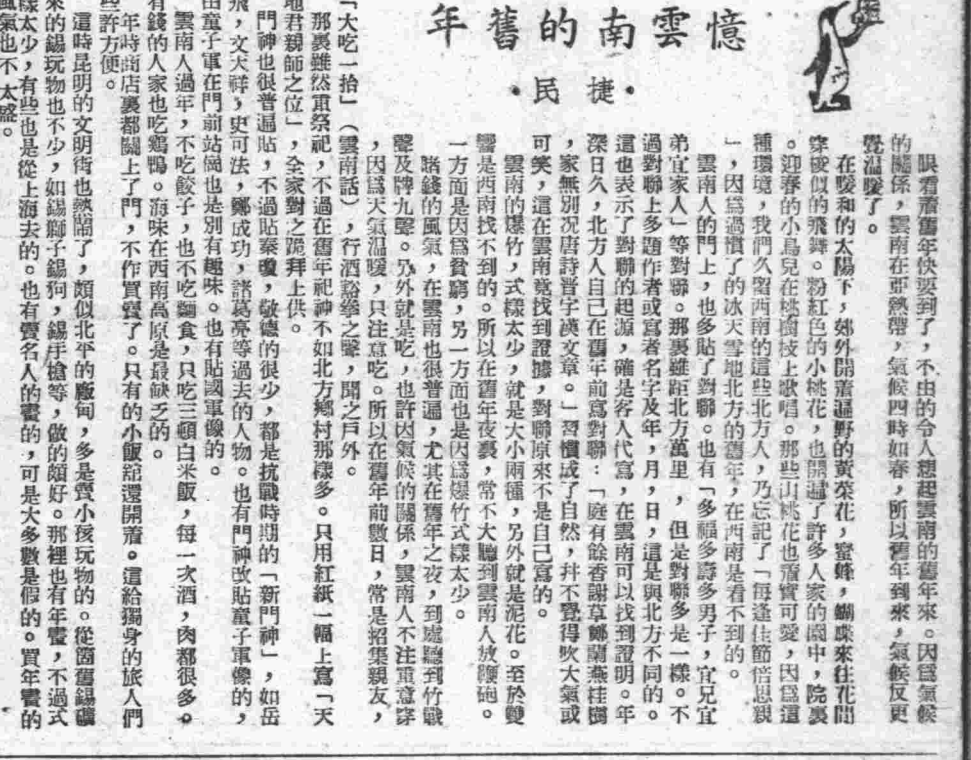 憶雲南的舊年
•捷民•
眼看着舊年快要到了，不由的令人想起雲南的舊年來。因爲氣候
的關係，雲南在亞熱帶，氣候四時如春，所以舊年到來，氣候反更
覺温暖了。
在暖和的太陽下，郊外開着遍野的黃菜花，蜜蜂，蝴蝶來往花間
穿梭似的飛舞。粉紅色的小桃花，也開遍了許多人家的園中，院裏
。迎春的小鳥兒在桃樹枝上歌唱。那些山桃花也着實可愛，因爲這
種環境，我們久留西南的這些北方人，乃忘記了「每逢佳節倍思親
」，因爲過慣了的冰天雪地北方的舊年，在西南是看不到的。
雲南人的門上，也多貼了對聯。也有「多福多壽多男子，宜兄宜
弟宜家人」等對聯。那裏雖距北方萬里，但是對聯多是一樣。不
過對聯上多題作者或寫者名字及年，月，日，這是與北方不同的。
這也表示了對聯的起源，確是客人代寫，在雲南可以找到證明。年
深日久，北方人自己在舊年前寫對聯：「庭有餘香謝草鄭蘭燕桂樹
，家無別況唐詩晋字漢文章。」習慣成了自然，幷不覺得吹大氣或
可笑，這在雲南竟找到證據，對聯原來不是自己寫的。
雲南的爆竹，式樣太少，就是大小兩種，另外就是泥花。至於雙
響是西南找不到的。所以在舊年夜裏，常不大聽到雲南人放鞭砲。
一方面是因爲貧窮，另一方面也是因爲爆竹式樣太少。
賭錢的風氣，在雲南也很普遍，尤其在舊年之夜，到處聽到竹戰
聲及牌九聲。另外就是吃，也許因氣候的關係，雲南人不注重意穿
，因爲天氣温暖，只注意吃。所以在舊年前數日，常是招集親友，
「大吃一拾」（雲南話），行酒豁拳之聲，聞之戶外。
那裏雖然重祭祀，不過在舊年祀神不如北方鄉村那樣多。只用紅紙一幅上寫「天
地君親師之位」，全家對之跪拜上供。
門神也很普遍貼，不過貼秦瓊，敬德的很少，都是抗戰時期的「新門神」，如岳
飛，文天祥，史可法，鄭成功，諸葛亮等過去的人物。也有門神改貼童子軍像的，
由童子軍在門前站崗也是別有趣味。也有貼國軍像的。
雲南人過年，不吃餃子，也不吃麵食，只吃三頓白米飯，每一次酒，肉都很多。
有錢的人家也吃鷄鴨。海味在西南高原是最缺乏的。
年時商店裏都關上了門，不作買賣了。只有的小飯舘還開着。這給獨身的旅人們
些許方便。
這時昆明的文明街也熱鬧了，頗似北平的廠甸，多是賣小孩玩物的。從箇舊錫礦
來的錫玩物也不少，如錫獅子錫狗，錫手槍等，做的頗好。那裡也有年畫，不過式
樣太少，有些也是從上海去的。也有賣名人的畫的，可是大多數是假的。買年畫的
風氣也不太盛。